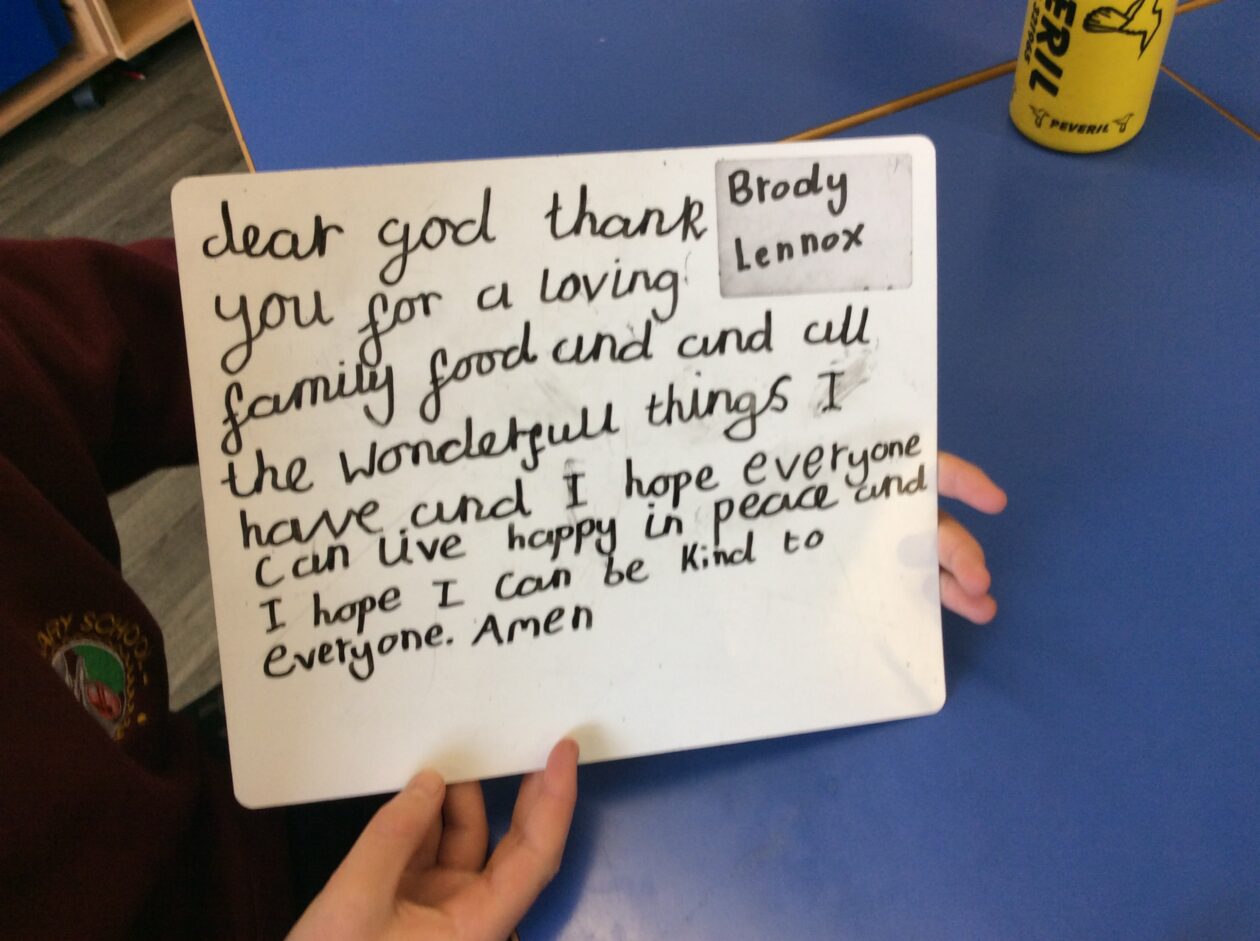 dear god thank
you for a loving
family food and and all
the wonderfull things I
have and I hope everyone
can live happy in peace and
I hope I can be kind to
everyone. Amen
Brody
Lennox
ERIL
PEVERIL
ARY SCHOOL